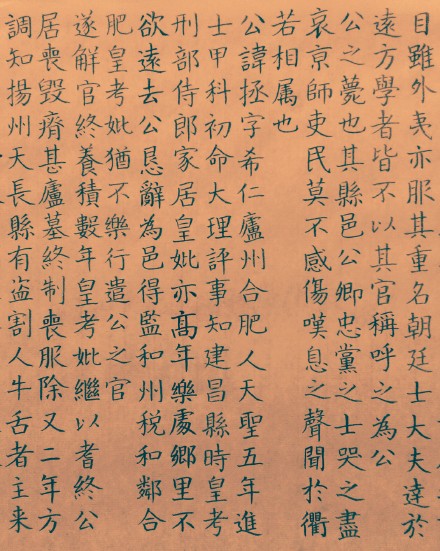 目雖外夷亦服其重名朝廷士大夫達於
遠方學者皆不以其官稱呼之為公
公之薨也其縣邑公卿忠黨之士哭之盡
哀京師吏民莫不感傷嘆息之聲聞於衢
若相属也
公諱拯字希仁廬州合肥人天聖五年進
士甲科初命大理評事知建昌縣時皇考
刑部侍郎家居皇妣亦高年樂處鄉里不
欲遠去公恳辭為邑得監和州税和鄰合
肥皇考妣猶不樂行遣公之官
遂解官終養積數年皇考妣繼以耆終公
居喪毀瘠甚廬墓終制喪服除又二年方
調知揚州天長縣有盗割人牛舌者主来